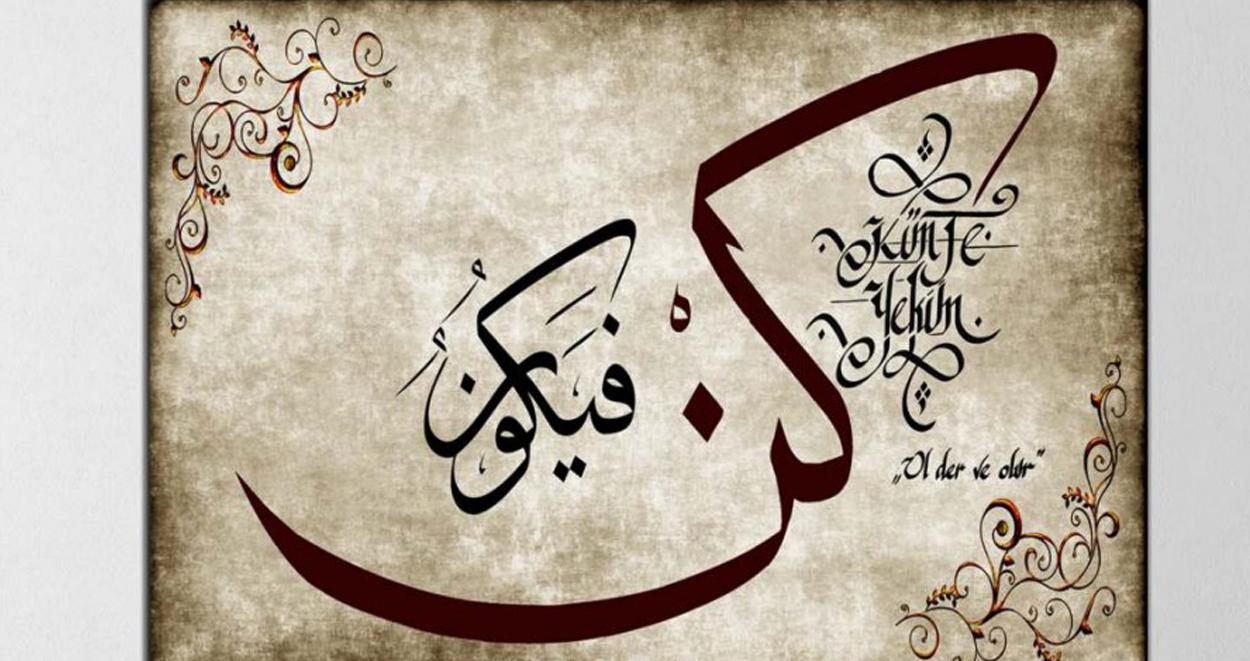 كنْ
فَيَكونُ
Kün Fe
Yekün
„Ol der ve olur”